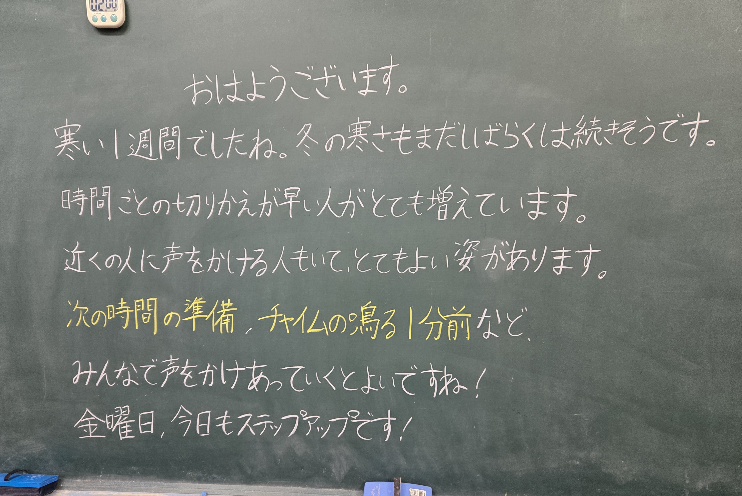 おはようございます。
寒い1週間でしたね。冬の寒さもまだしばらくは続きそうです。
時間ごとの切りかえが早い人がとても増えています。
近くの人に声をかける人もいて、とてもよい姿があります。
次の時間の準備、チャイムの鳴る1分前など、
みんなで声をかけあっていくとよいですね!
金曜日、今日もステップアップです!